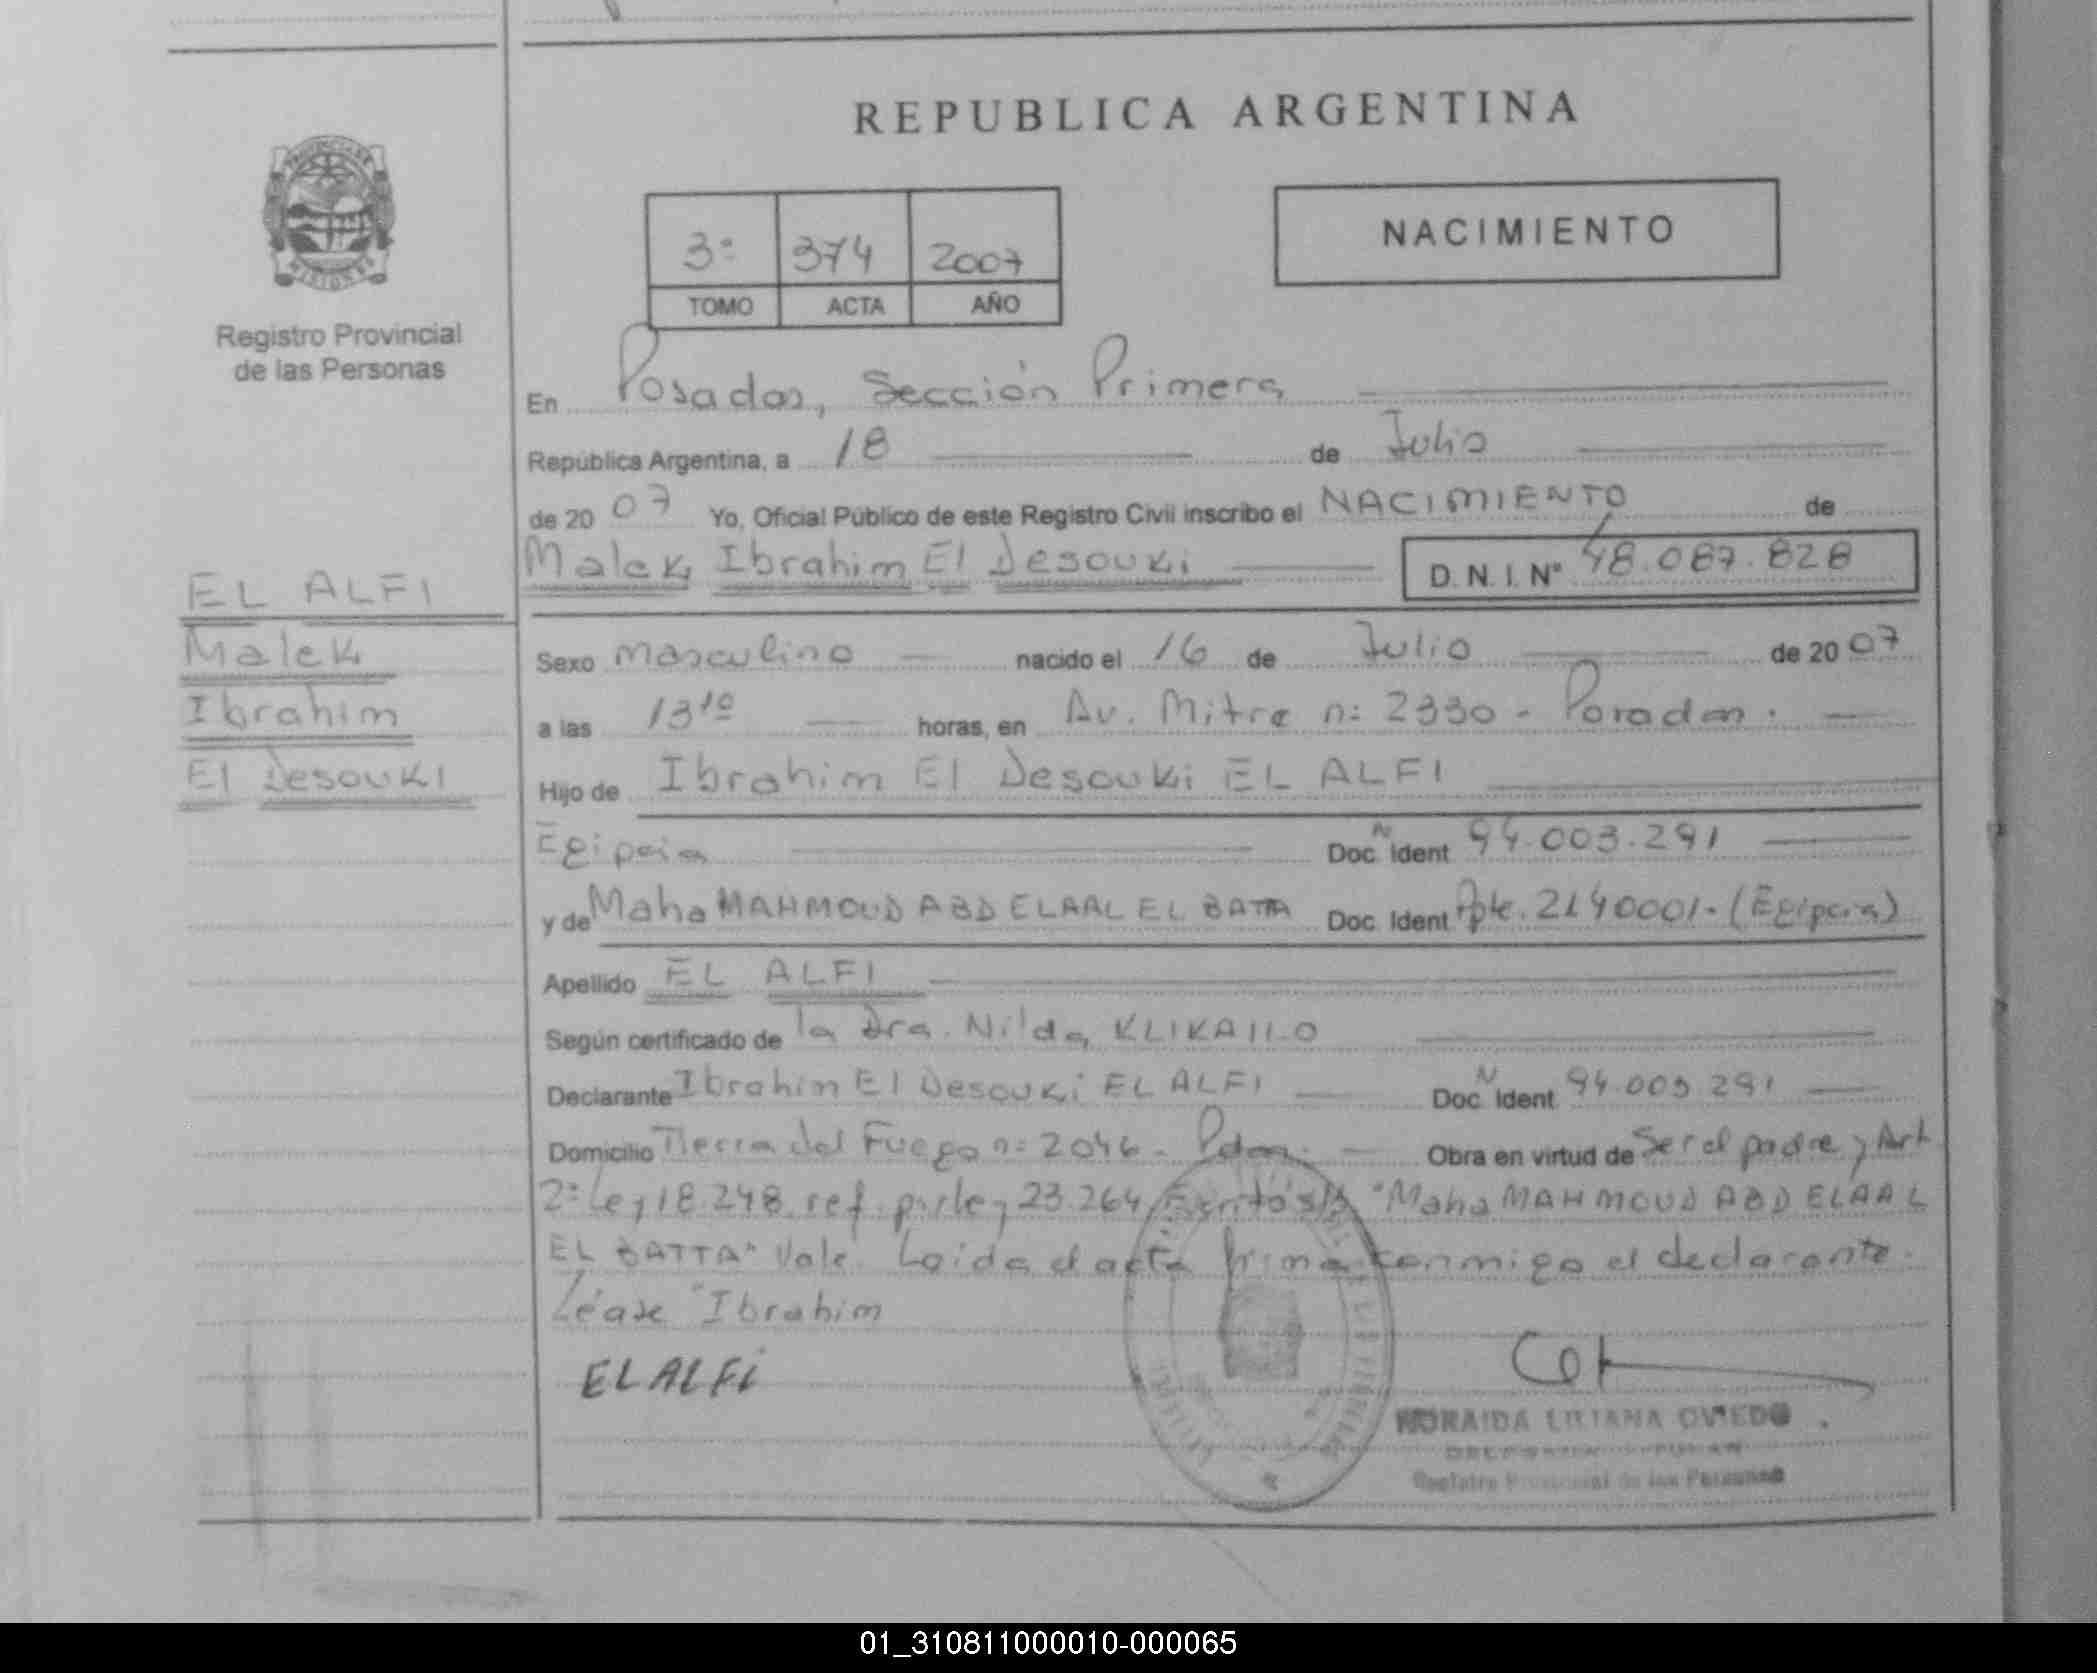 REPUBLICA ARGENTINA
PROVINCIA DE
MISIONES
Registro Provincial
de las Personas
3º 374 2007
TOMO ACTA AÑO
NACIMIENTO
En Posadas, Sección Primera
República Argentina, a 18 de Julio
de 2007 Yo, Oficial Público de este Registro Civil inscribo el NACIMIENTO de
Malek Ibrahim El Desouki D.N.I. Nº 48.087.828
EL ALFI
Malek
Ibrahim
El Desouki
Sexo masculino nacido el 16 de Julio de 2007
a las 13¹⁰ horas, en Av. Mitre nº 2330 - Posadas.
Hijo de Ibrahim El Desouki EL ALFI
Egipcia Doc. N Ident 94.003.291
y de Maha MAHMOUD ABD ELAAL EL BATTA Doc. Ident Ppte. 2140001- (Egipcia)
Apellido EL ALFI
Según certificado de la Dra. Nilda
Declarante Ibrahim El Desouki EL ALFI Doc. N Ident 94.003.291
Domicilio Tierra del Fuego nº 2046 - Pdas. Obra en virtud de Ser el padre y Art
2º Ley 18.248 ref. p. ley 23.264 "Maha MAHMOUD ABD ELAAL
EL BATTA" Vale. Leída el acta firma conmigo el declarante.
Léase "Ibrahim
EL ALFI
LILIANA OVIEDO
Registro Provincial de las Personas
01_310811000010-000065